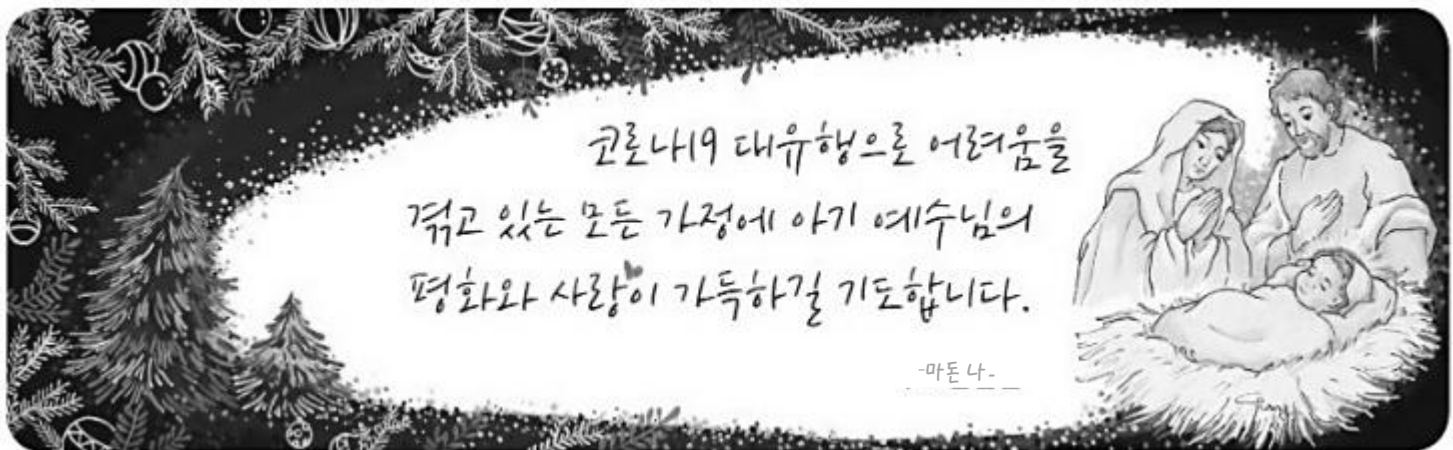 코로나19 대유행으로 어려움을
겪고 있는 모든 가정에 아기 예수님의
평화와 사랑이 가득하길 기도합니다.
-마돈나-